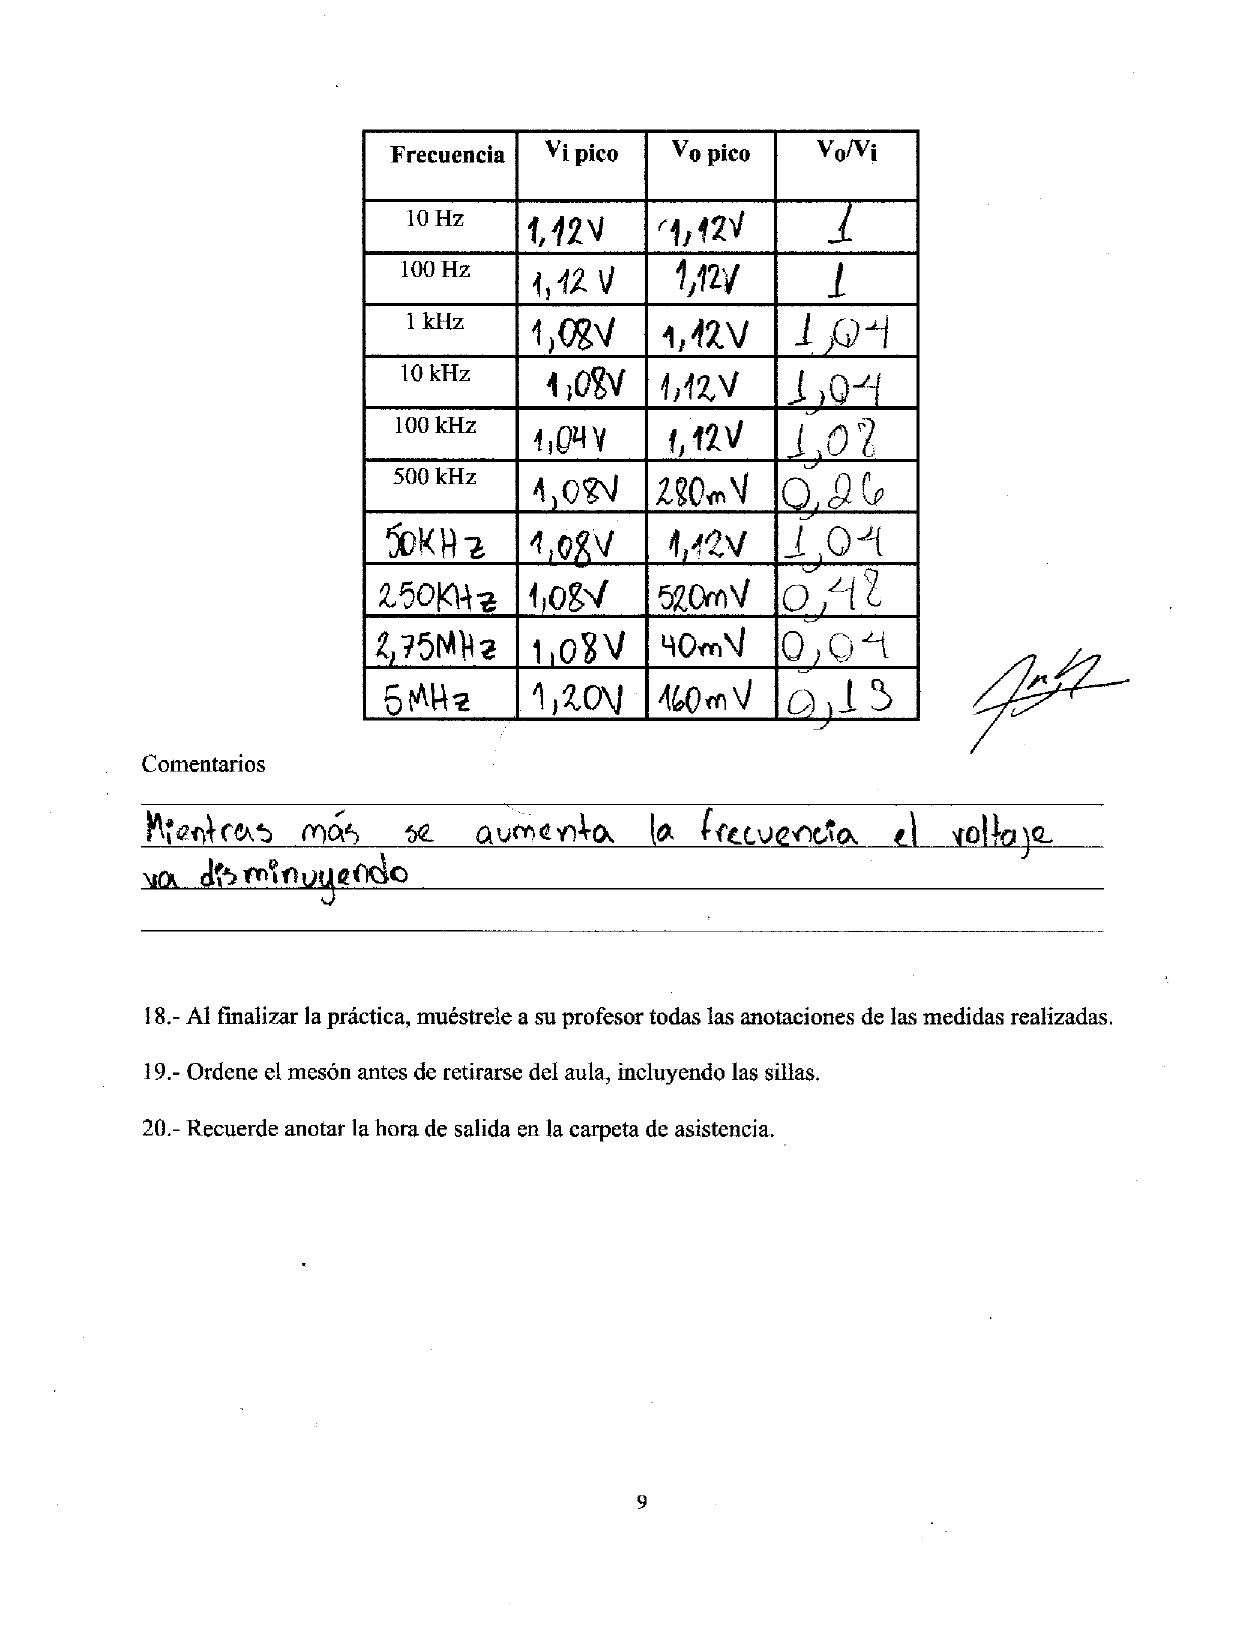 Frecuencia Vi pico Vo pico Vo/Vi
10 Hz 1,12V 1,12V 1
100 Hz 1,12 V 1,12V 1
1 kHz 1,08V 1,12V 1,04
10 kHz 1,08V 1,12V 1,04
100 kHz 1,04V 1,12V 1,08
500 kHz 1,08V 280mV 0,26
50KHz 1,08V 1,12V 1,04
250KHz 1,08V 520mV 0,48
2,75MHz 1,08V 40mV 0,04
5MHz 1,20V 160mV 0,13
Comentarios
Mientras más se aumenta la frecuencia el voltaje
va disminuyendo
18.- Al finalizar la práctica, muéstrele a su profesor todas las anotaciones de las medidas realizadas.
19.- Ordene el mesón antes de retirarse del aula, incluyendo las sillas.
20.- Recuerde anotar la hora de salida en la carpeta de asistencia.
9